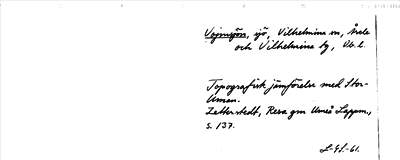 Vojmsjön, sjö, Vilhelmina sn, Åsele
och Vilhelmina lg, Vb. l.
Topografisk jämförelse med Stor-
Uman.
Zetterstedt, Resa gm Umeå Lappm.,
s. 137.